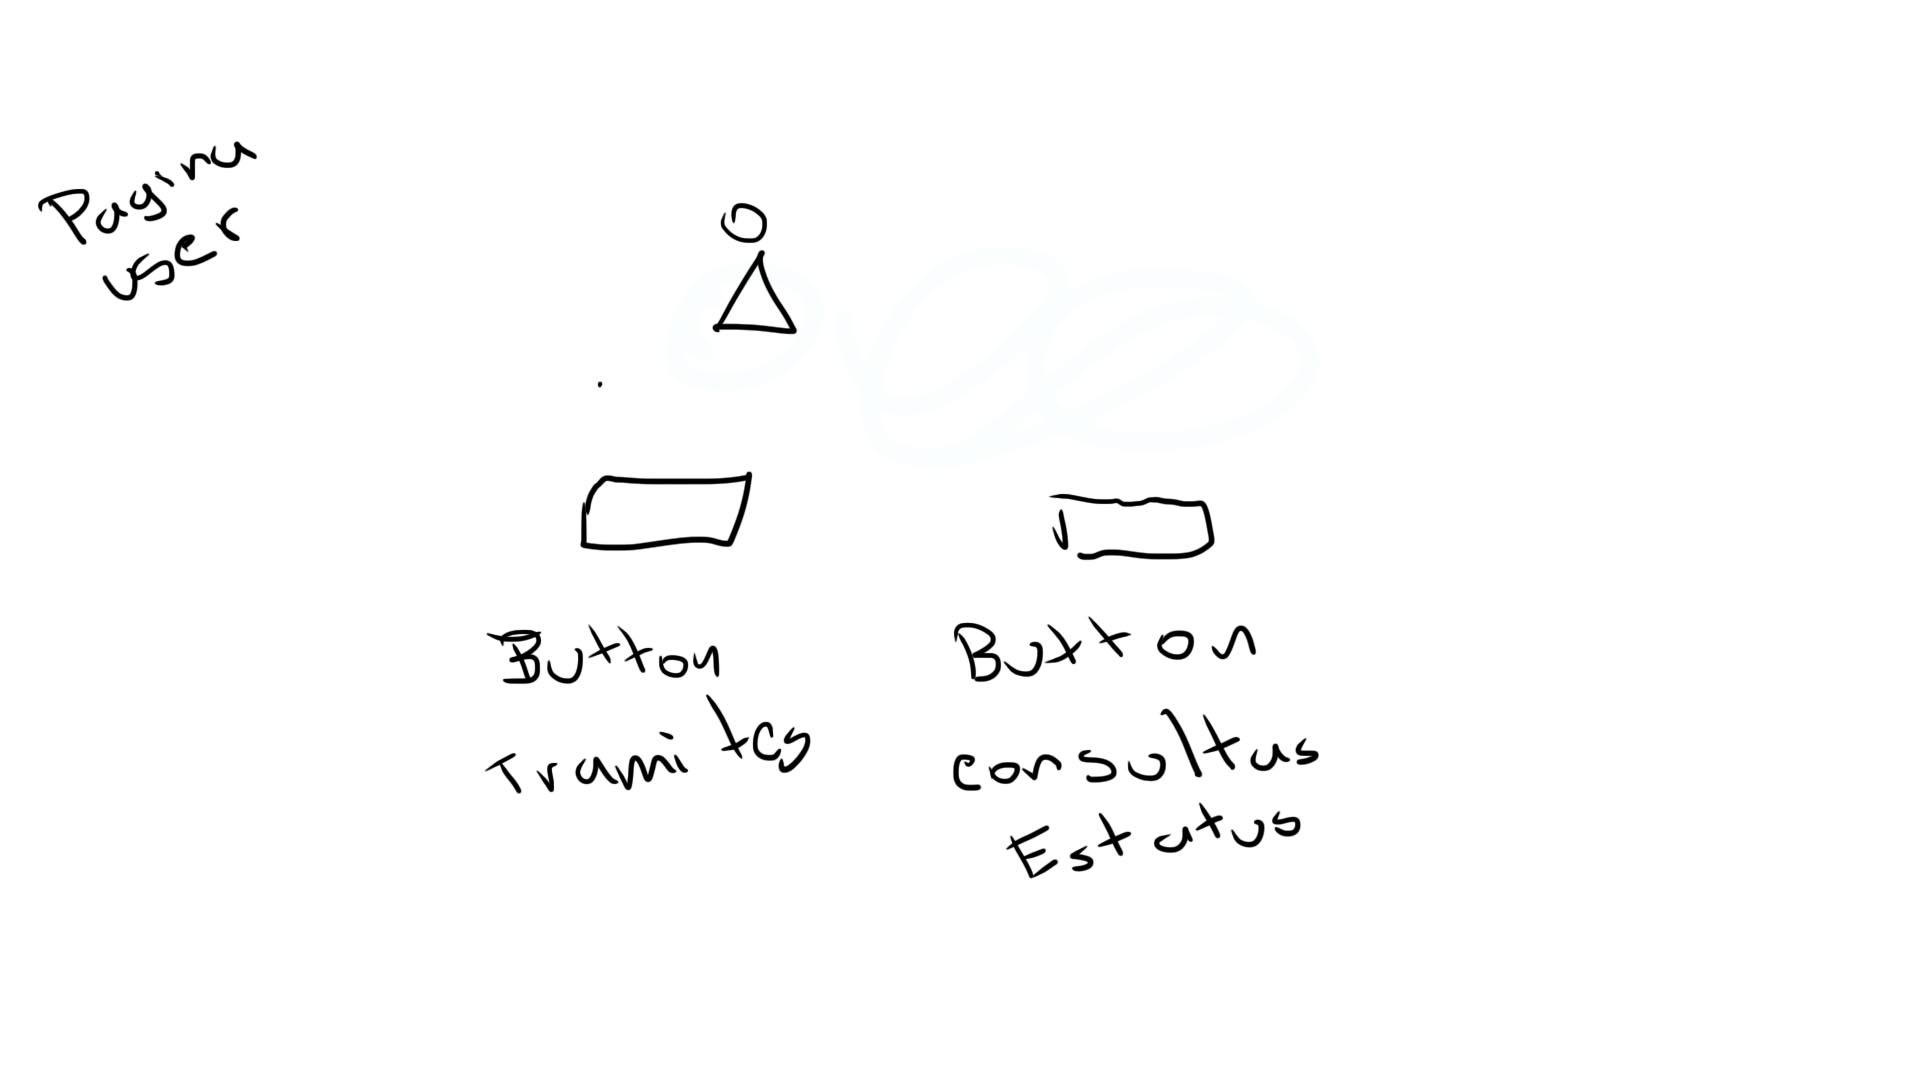 Pagina
user
Button
Tramites
Button
consultas
Estatus